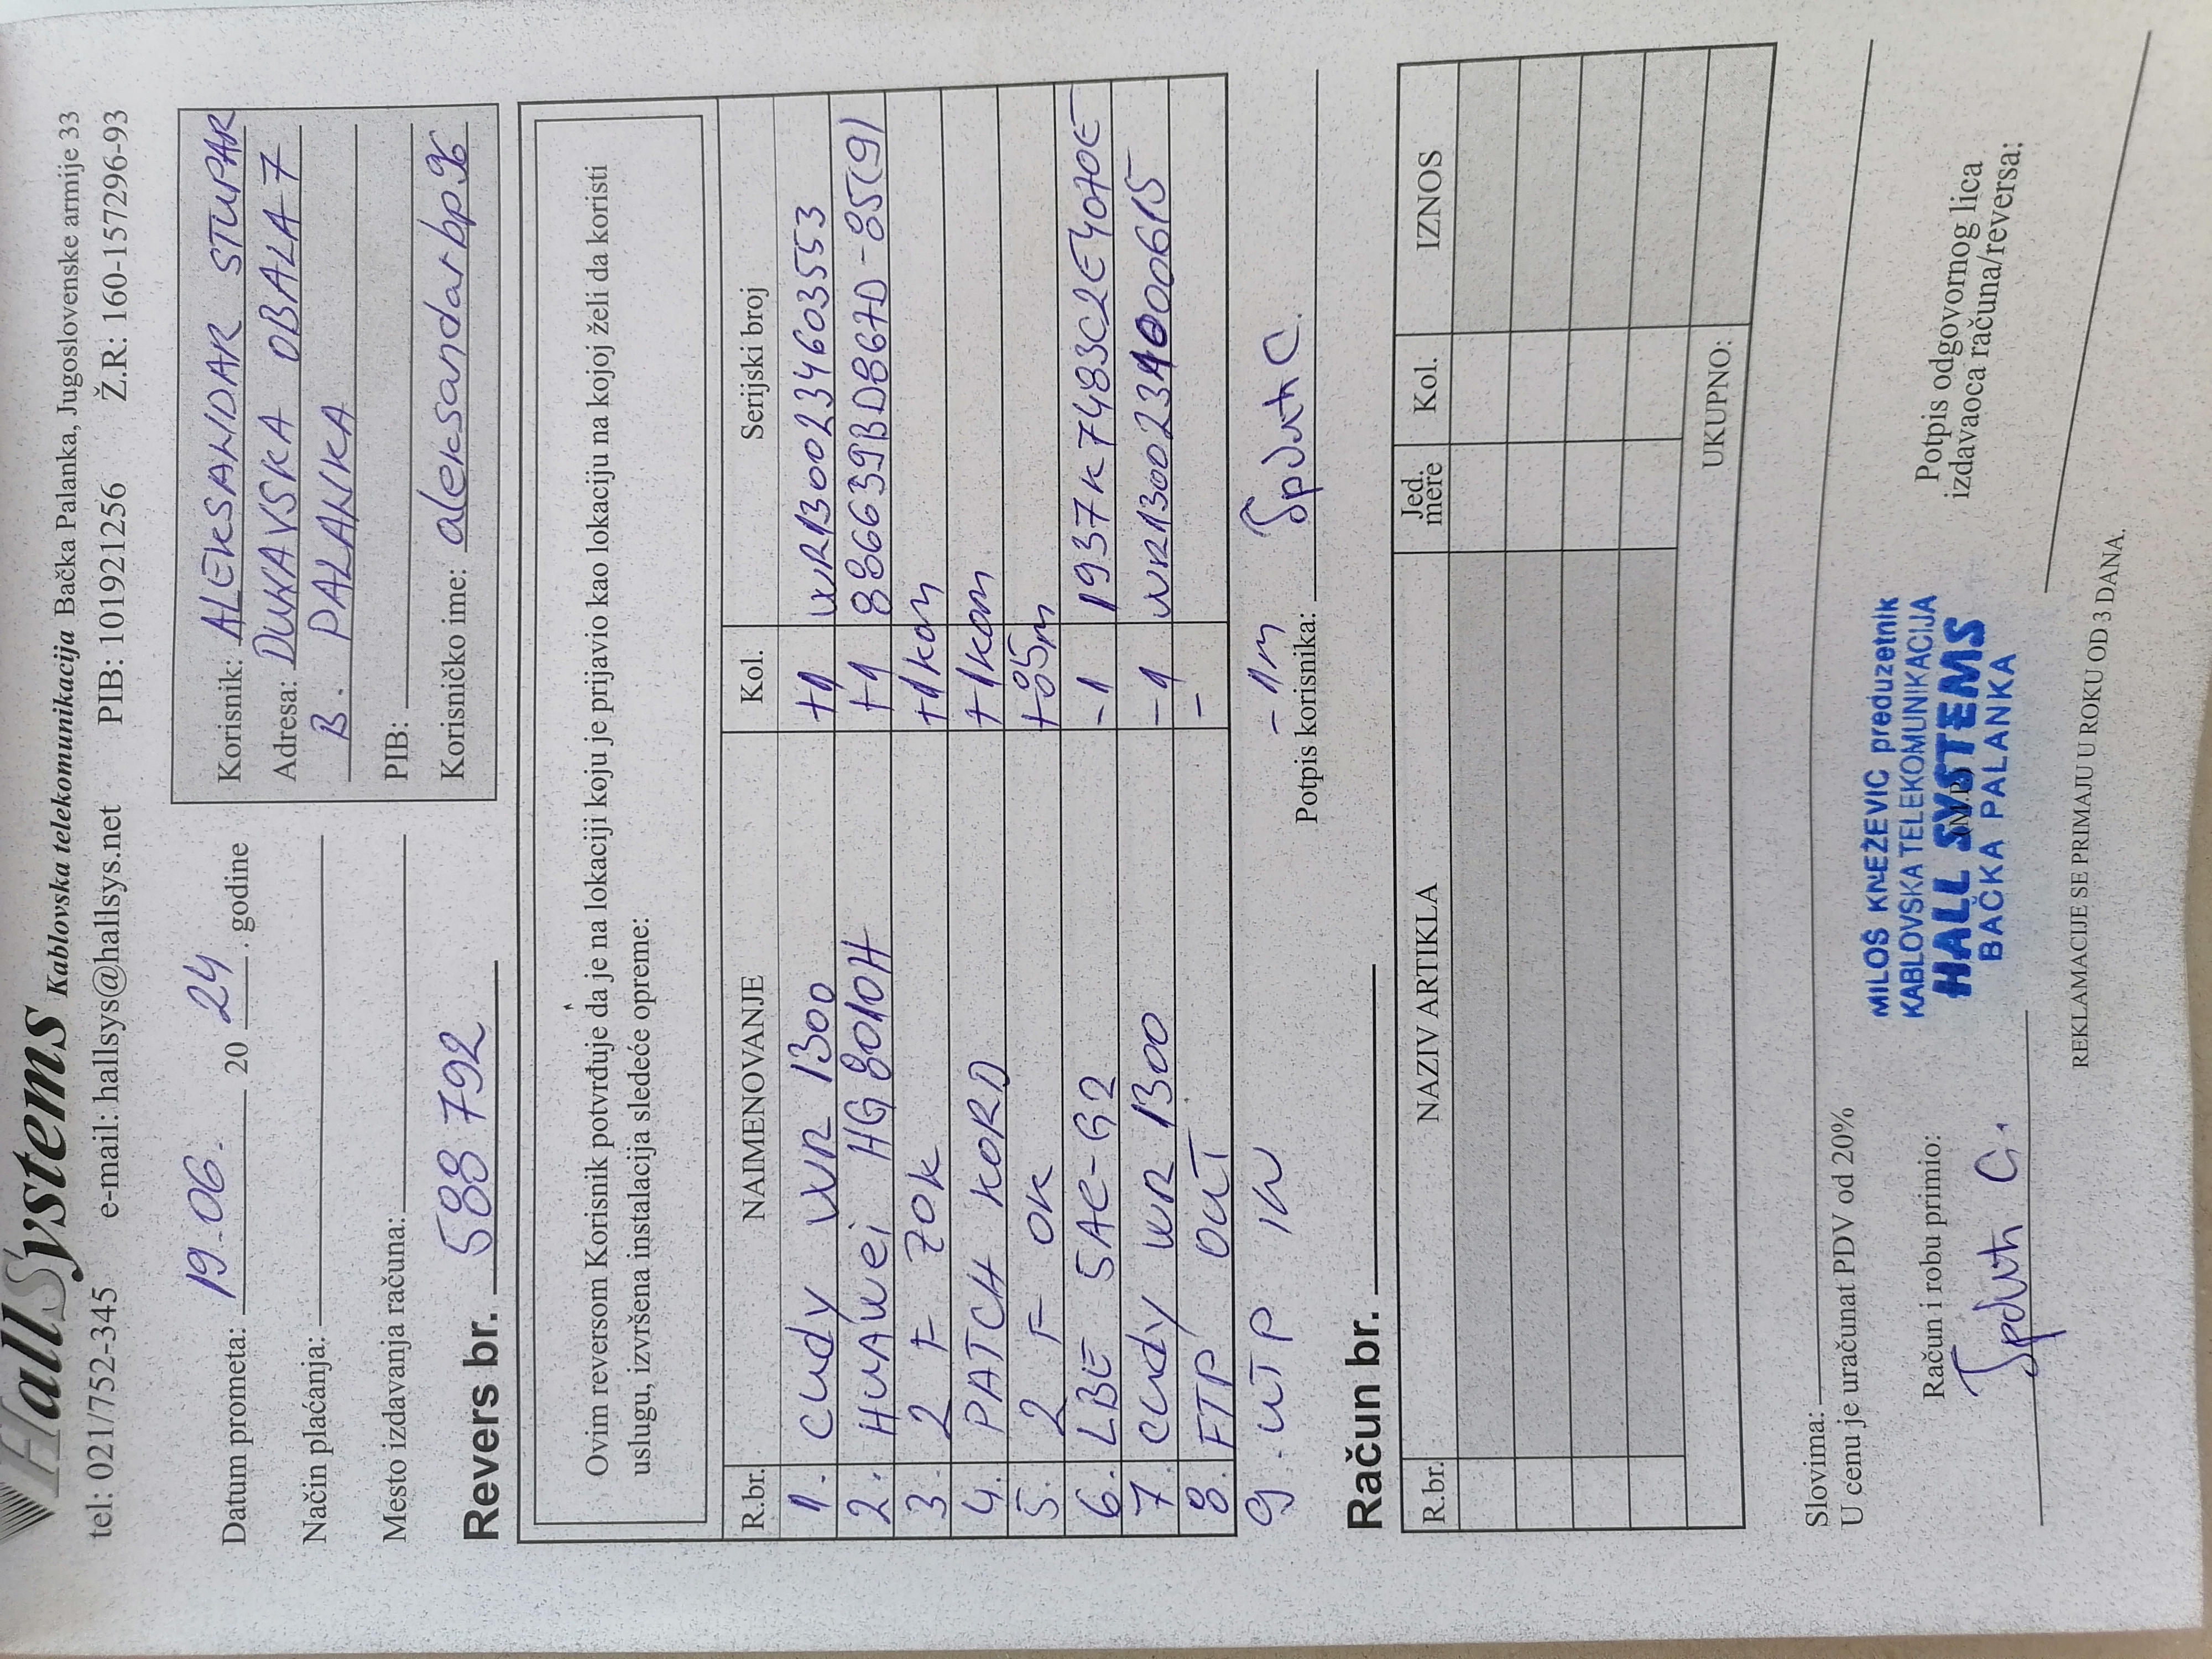 HallSystems Kablovska telekomunikacija Bačka Palanka, Jugoslovenske armije 33
tel: 021/752-345 e-mail: hallsys@hallsys.net PIB: 101921256 Ž.R: 160-157296-93
Datum prometa: 19.06. 20 24. godine
Način plaćanja:
Mesto izdavanja računa:
Korisnik: ALEKSANDAR STUPAR
Adresa: DUNAVSKA OBALA 7
B. PALANKA
PIB:
Korisničko ime: aleksandarbp96
Revers br. 588 792
Ovim reversom Korisnik potvrđuje da je na lokaciji koju je prijavio kao lokaciju na kojoj želi da koristi
uslugu, izvršena instalacija sledeće opreme:
R.br. NAIMENOVANJE Kol. Serijski broj
1. Cudy WR 1300 +1 WR1300234603553
2. HUAWEI HG 8010H +1 886639BD867D-85(9)
3. 2 F ZOK +1kom
4. PATCH KORD +1kom
5. 2 F OK +85m
6. LBE 5AC-G2 -1 1937K7483C2E4070E
7. Cudy WR 1300 -1 WR1300234000615
8. FTP OUT -
9. UTP IN -1m
Potpis korisnika:
Račun br.
R.br. NAZIV ARTIKLA Jed. mere Kol. IZNOS
UKUPNO:
Slovima:
U cenu je uračunat PDV od 20%
Račun i robu primio:
MILOŠ KNEŽEVIĆ preduzetnik
KABLOVSKA TELEKOMUNIKACIJA
HALL SYSTEMS
BAČKA PALANKA
Potpis odgovornog lica
izdavaoca računa/reversa:
REKLAMACIJE SE PRIMAJU U ROKU OD 3 DANA.